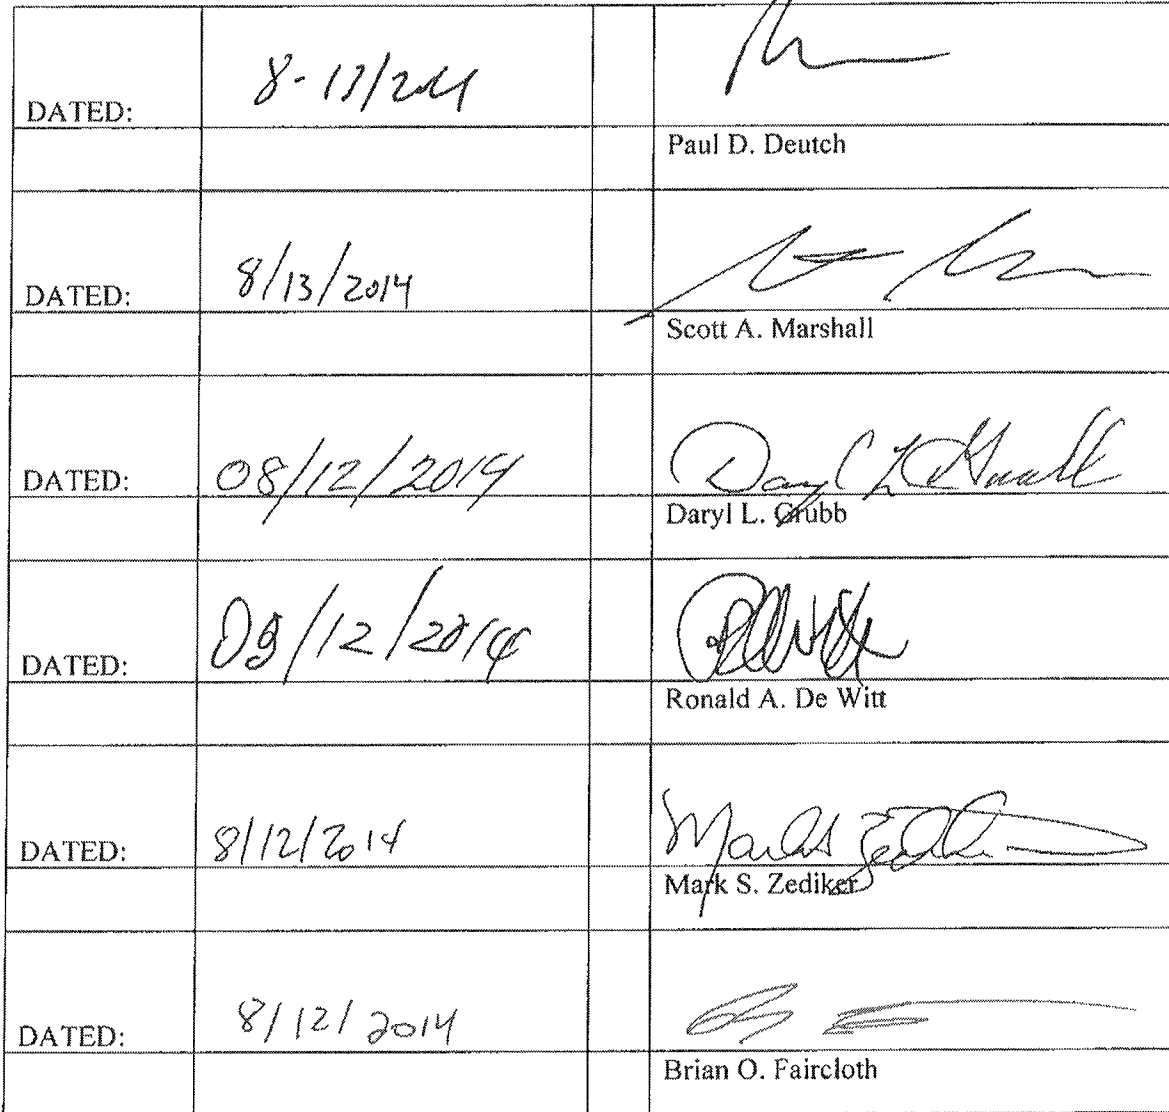 DATED: 8-13/2014
Paul D. Deutch
DATED: 8/13/2014
Scott A. Marshall
DATED: 08/12/2014
Daryl L. Grubb
DATED: 08/12/2014
Ronald A. De Witt
DATED: 8/12/2014
Mark S. Zediker
DATED: 8/12/2014
Brian O. Faircloth